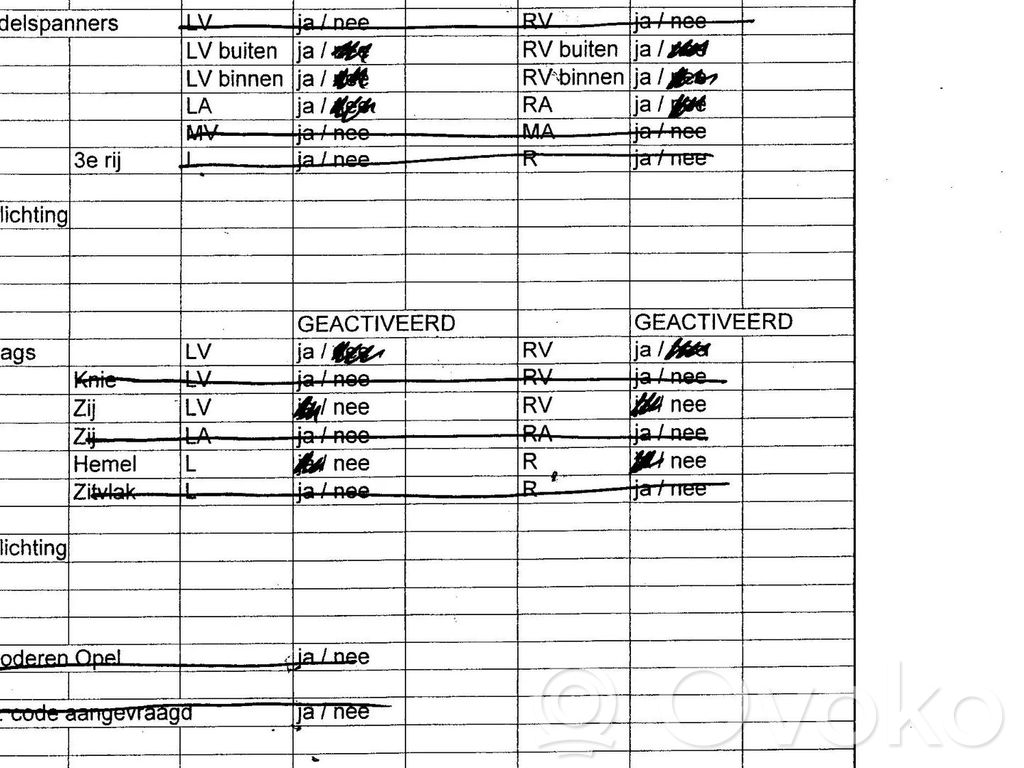 delspanners LV ja / nee RV ja / nee
LV buiten ja / RV buiten ja /
LV binnen ja / RV binnen ja /
LA ja / RA ja /
MV ja / nee MA ja / nee
3e rij L ja / nee R ja / nee
lichting
GEACTIVEERD GEACTIVEERD
ags LV ja / RV ja /
Knie LV ja / nee RV ja / nee
Zij LV / nee RV / nee
Zij LA ja / nee RA ja / nee
Hemel L / nee R / nee
Zitvlak L ja / nee R ja / nee
lichting
oderen Opel ja / nee
code aangevraagd ja / nee
Ovoko